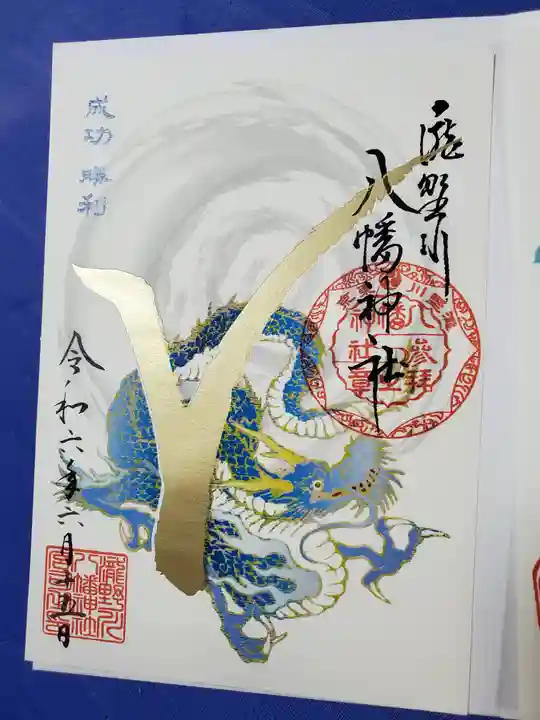 瀧野川
八幡神社
参拝
成功 勝利
令和六年六月十五日
瀧野川
八幡神社